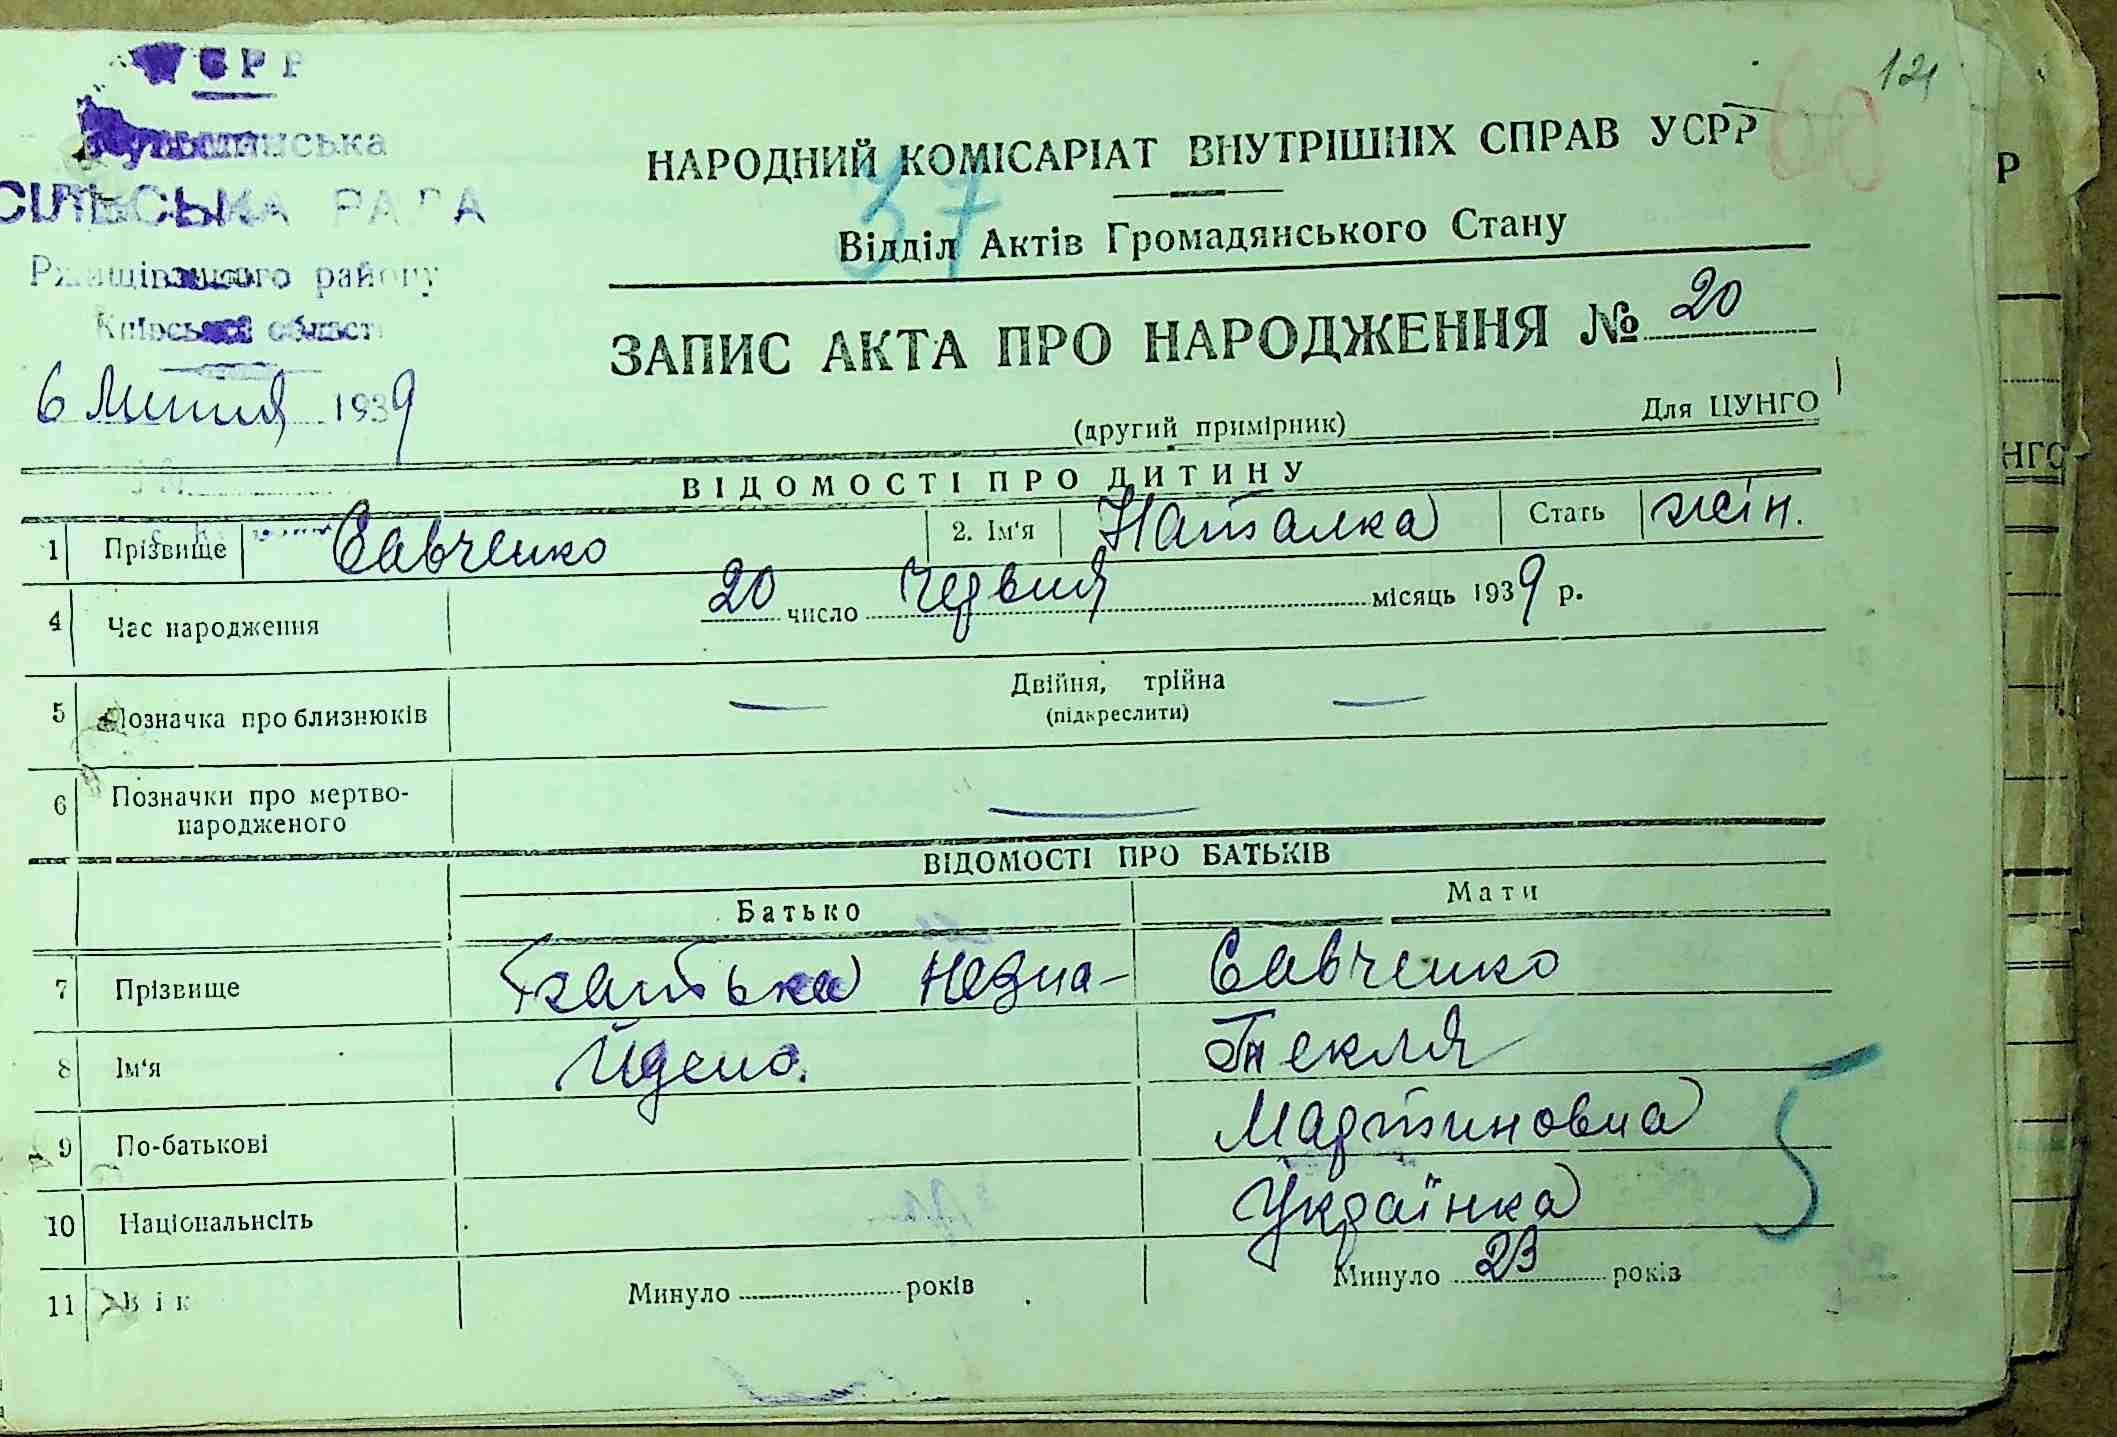 УСРР
СІЛЬСЬКА РАДА
Ржищівського району
Київської області
6 Липня 1939
121
60
37
НАРОДНИЙ КОМІСАРІАТ ВНУТРІШНІХ СПРАВ УСРР
Відділ Актів Громадянського Стану
ЗАПИС АКТА ПРО НАРОДЖЕННЯ № 20
(другий примірник)
Для ЦУНГО
ВІДОМОСТІ ПРО ДИТИНУ
1 Прізвище Савченко 2. Ім'я Наталка Стать жін.
4 Час народження 20 число Червня місяць 1939 р.
5 Позначка про близнюків — Двійня, трійна —
(підкреслити)
6 Позначки про мертво-
народженого —
ВІДОМОСТІ ПРО БАТЬКІВ
Батько Мати
7 Прізвище Батька незна- Савченко
8 Ім'я йдено. Текля
9 По-батькові Мартиновна
10 Національнсіть Українка
11 Вік Минуло років Минуло 23 років
5
Р
НГО